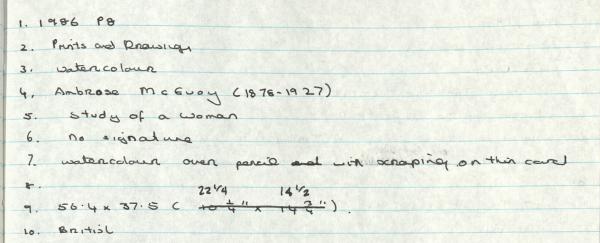 1. 1986 P8
2. Prints and Drawings
3. watercolour
4. Ambrose McEvoy (1878-1927)
5. Study of a woman
6. no signature
7. watercolour over pencil and with scraping on thin card
8.
22 1/4 14 1/2
9. 56.4 x 37.5 ( 10 1/4" x 14 3/4" ).
10. British